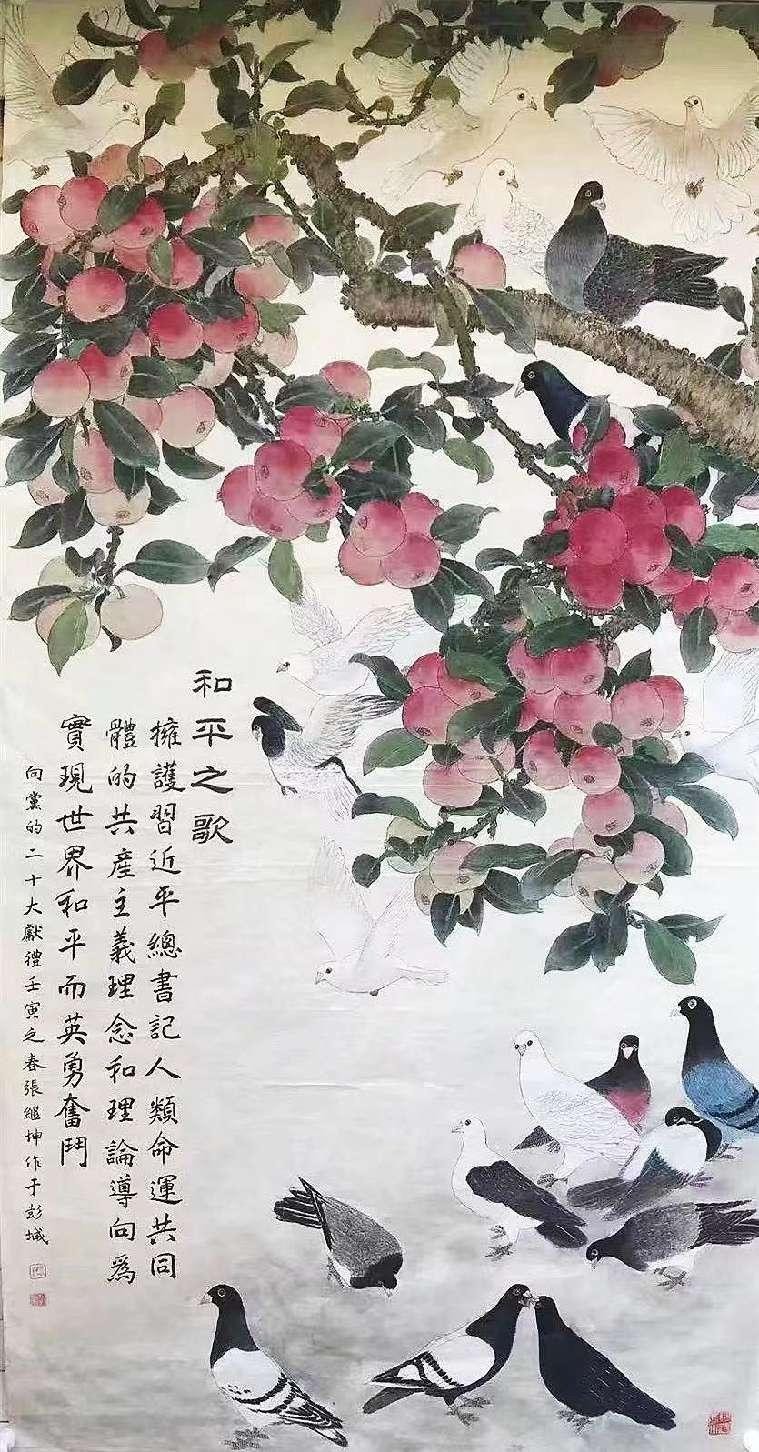 和平之歌
擁護習近平總書記人類命運共同
體的共産主義理念和理論導向爲
實現世界和平而英勇奮鬥
向黨的二十大獻禮壬寅之春張繼坤作于彭城